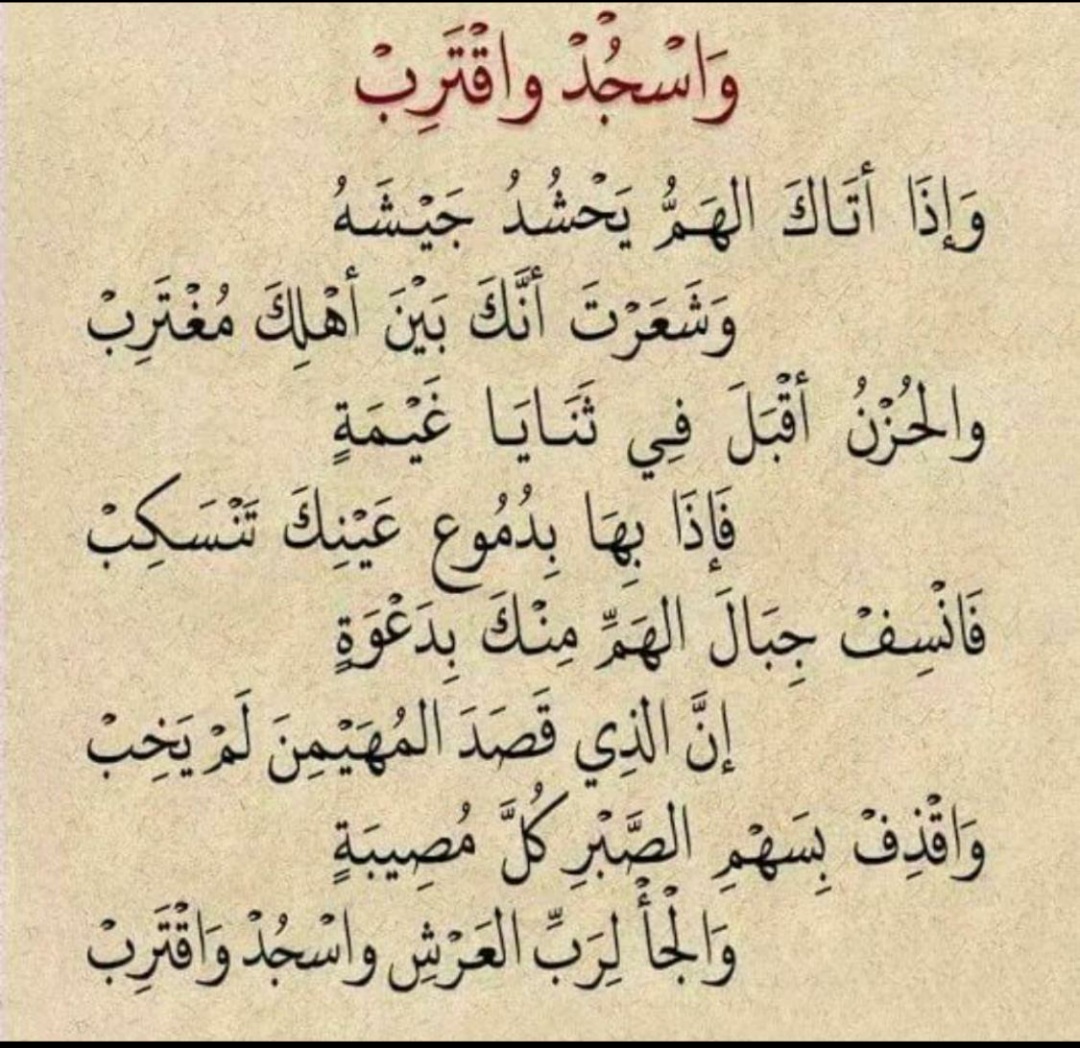 وَاسْجُدْ واقْتَرِبْ
وَإِذَا أتَاكَ الهَمُّ يَحْشُدُ جَيْشَهُ
وَشَعَرْتَ أنَّكَ بَيْنَ أهْلِكَ مُغْتَرِبْ
والحُزْنُ أقْبَلَ فِي ثَنَايَا غَيْمَةٍ
فَإِذَا بِهَا بِدُمُوع عَيْنِكَ تَنْسَكِبْ
فَانْسِفْ جِبَالَ الهَمِّ مِنْكَ بِدَعْوَةٍ
إنَّ الذِي قَصَدَ المُهَيْمِنَ لَمْ يَخِبْ
وَاقْذِفْ بِسَهْمِ الصَّبْرِ كُلَّ مُصِيبَةٍ
وَالْجَأْ لِرَبِّ العَرْشِ واسْجُدْ وَاقْتَرِبْ